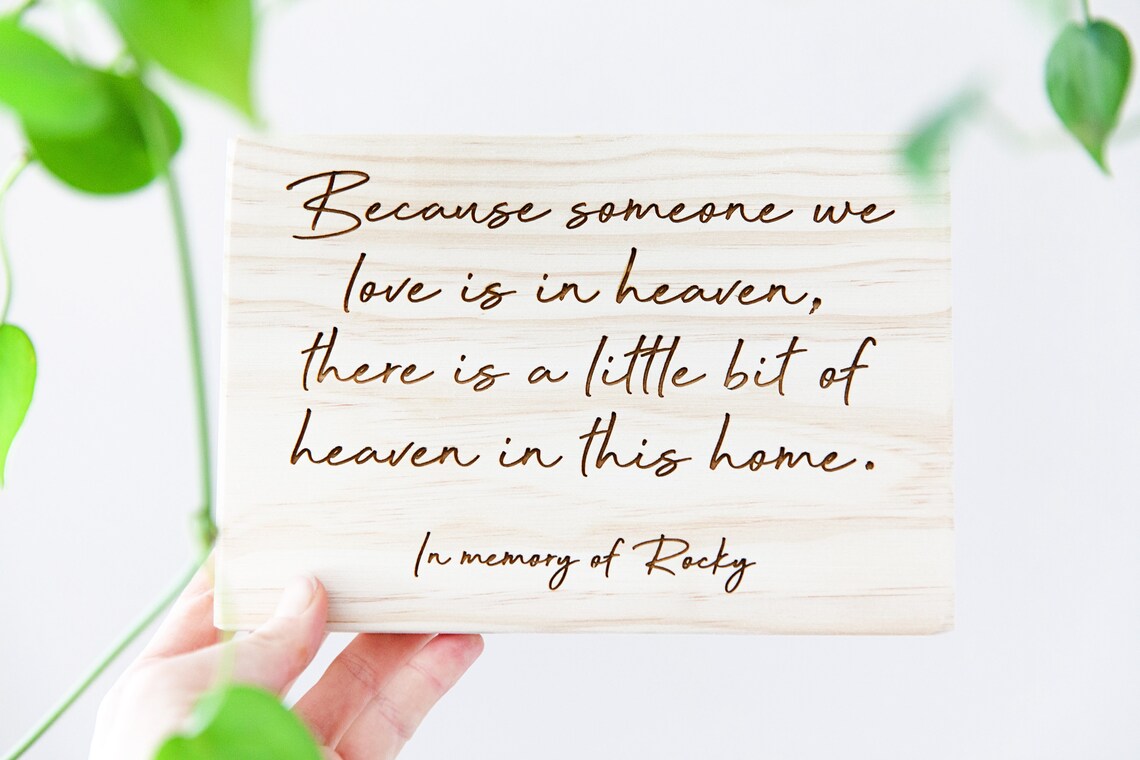 Because someone we
love is in heaven,
there is a little bit of
heaven in this home.
In memory of Rocky